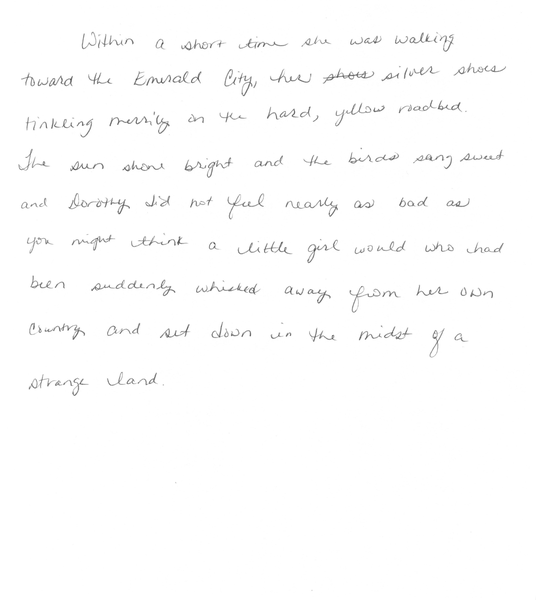 Within a short time she was walking
toward the Emerald City, her shoes silver shoes
tinkling merrily on the hard, yellow roadbed.
The sun shone bright and the birds sang sweet
and Dorothy did not feel nearly as bad as
you might think a little girl would who had
been suddenly whisked away from her own
country and set down in the midst of a
strange land.